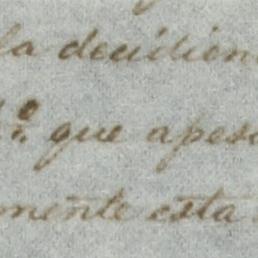 la decidien
que apesa
mente esta